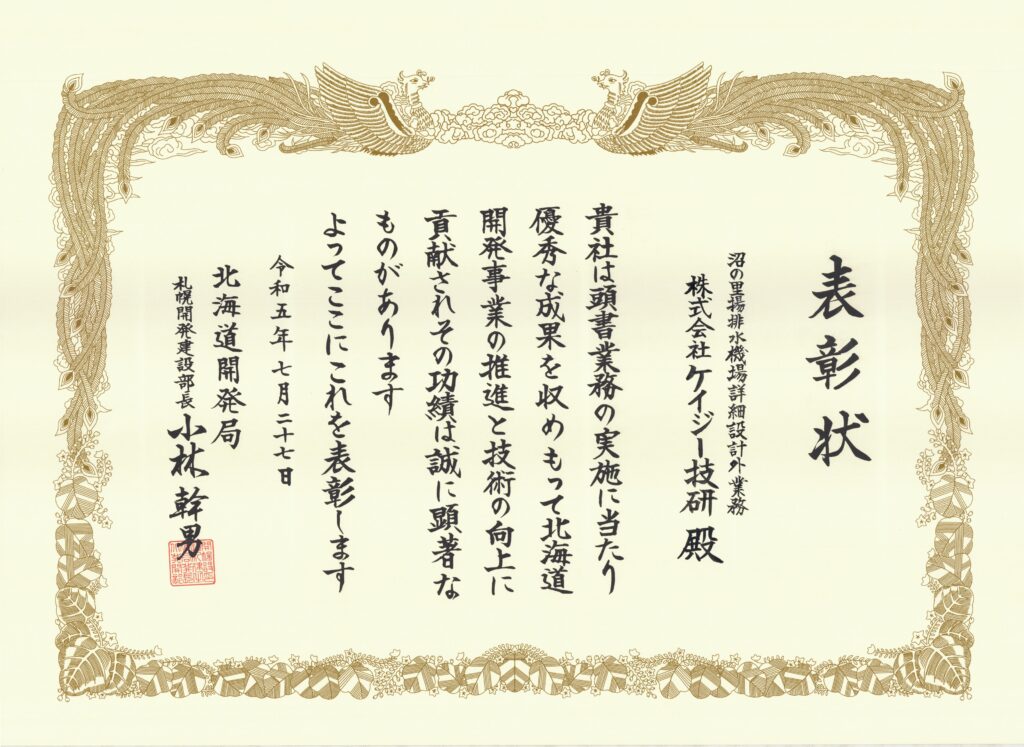 表彰状
沼の里揚排水機場詳細設計外業務
株式会社ケイジー技研 殿
貴社は頭書業務の実施に当たり
優秀な成果を収めもって北海道
開発事業の推進と技術の向上に
貢献されその功績は誠に顕著な
ものがあります
よってここにこれを表彰します
令和五年七月二十七日
北海道開発局
札幌開発建設部長 小林幹男